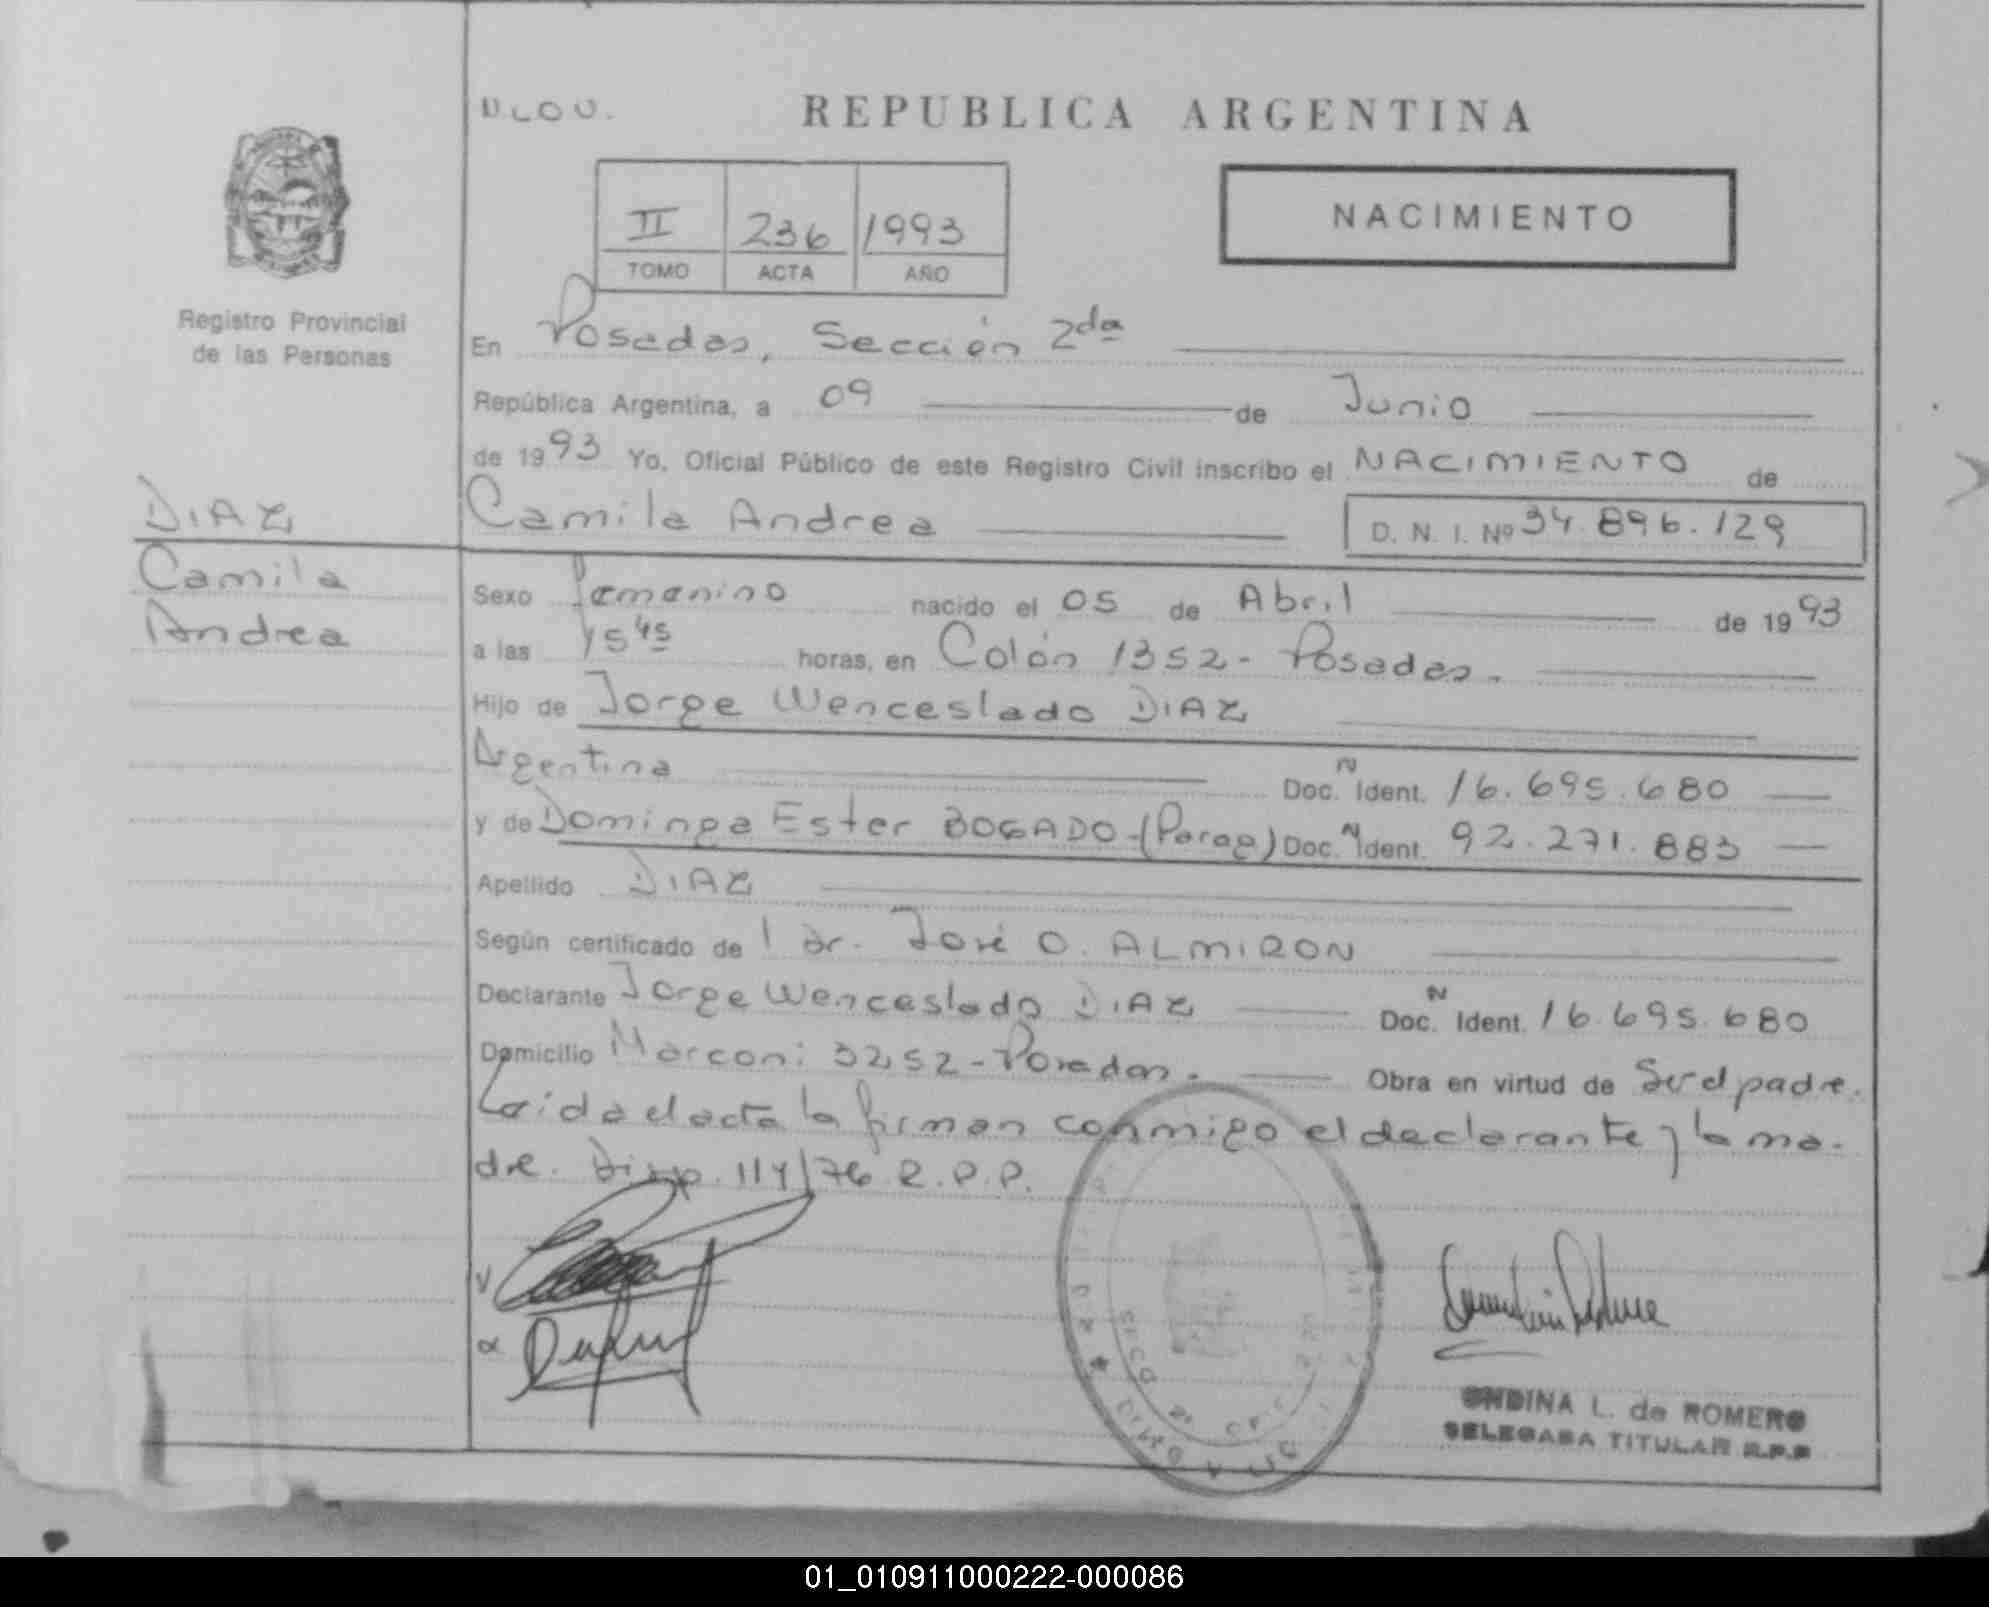 REPUBLICA ARGENTINA
II 236 1993
TOMO ACTA AÑO
NACIMIENTO
Registro Provincial
de las Personas
En Posadas, Sección 2da
República Argentina, a 09 de Junio
de 1993 Yo, Oficial Público de este Registro Civil inscribo el NACIMIENTO de
DIAZ
Camila Andrea D. N. I. Nº 34.896.129
Camila
Andrea
Sexo femenino nacido el 05 de Abril de 1993
a las 15 45 horas, en Colón 1352 - Posadas.
Hijo de Jorge Wenceslado DIAZ
Argentina Doc. N Ident. 16.695.680
y de Dominga Ester BOGADO - (Parag) Doc. N Ident. 92.271.883
Apellido DIAZ
Según certificado de l Dr. José O. ALMIRON
Declarante Jorge Wenceslado DIAZ Doc. N Ident. 16.695.680
Domicilio Marconi 3252 - Posadas. Obra en virtud de Ser el padre.
Leida el acta la firman conmigo el declarante y la ma-
dre. Disp. 114/76 R.P.P.
ONDINA L. de ROMERO
DELEGADA TITULAR R.P.P
01_010911000222-000086